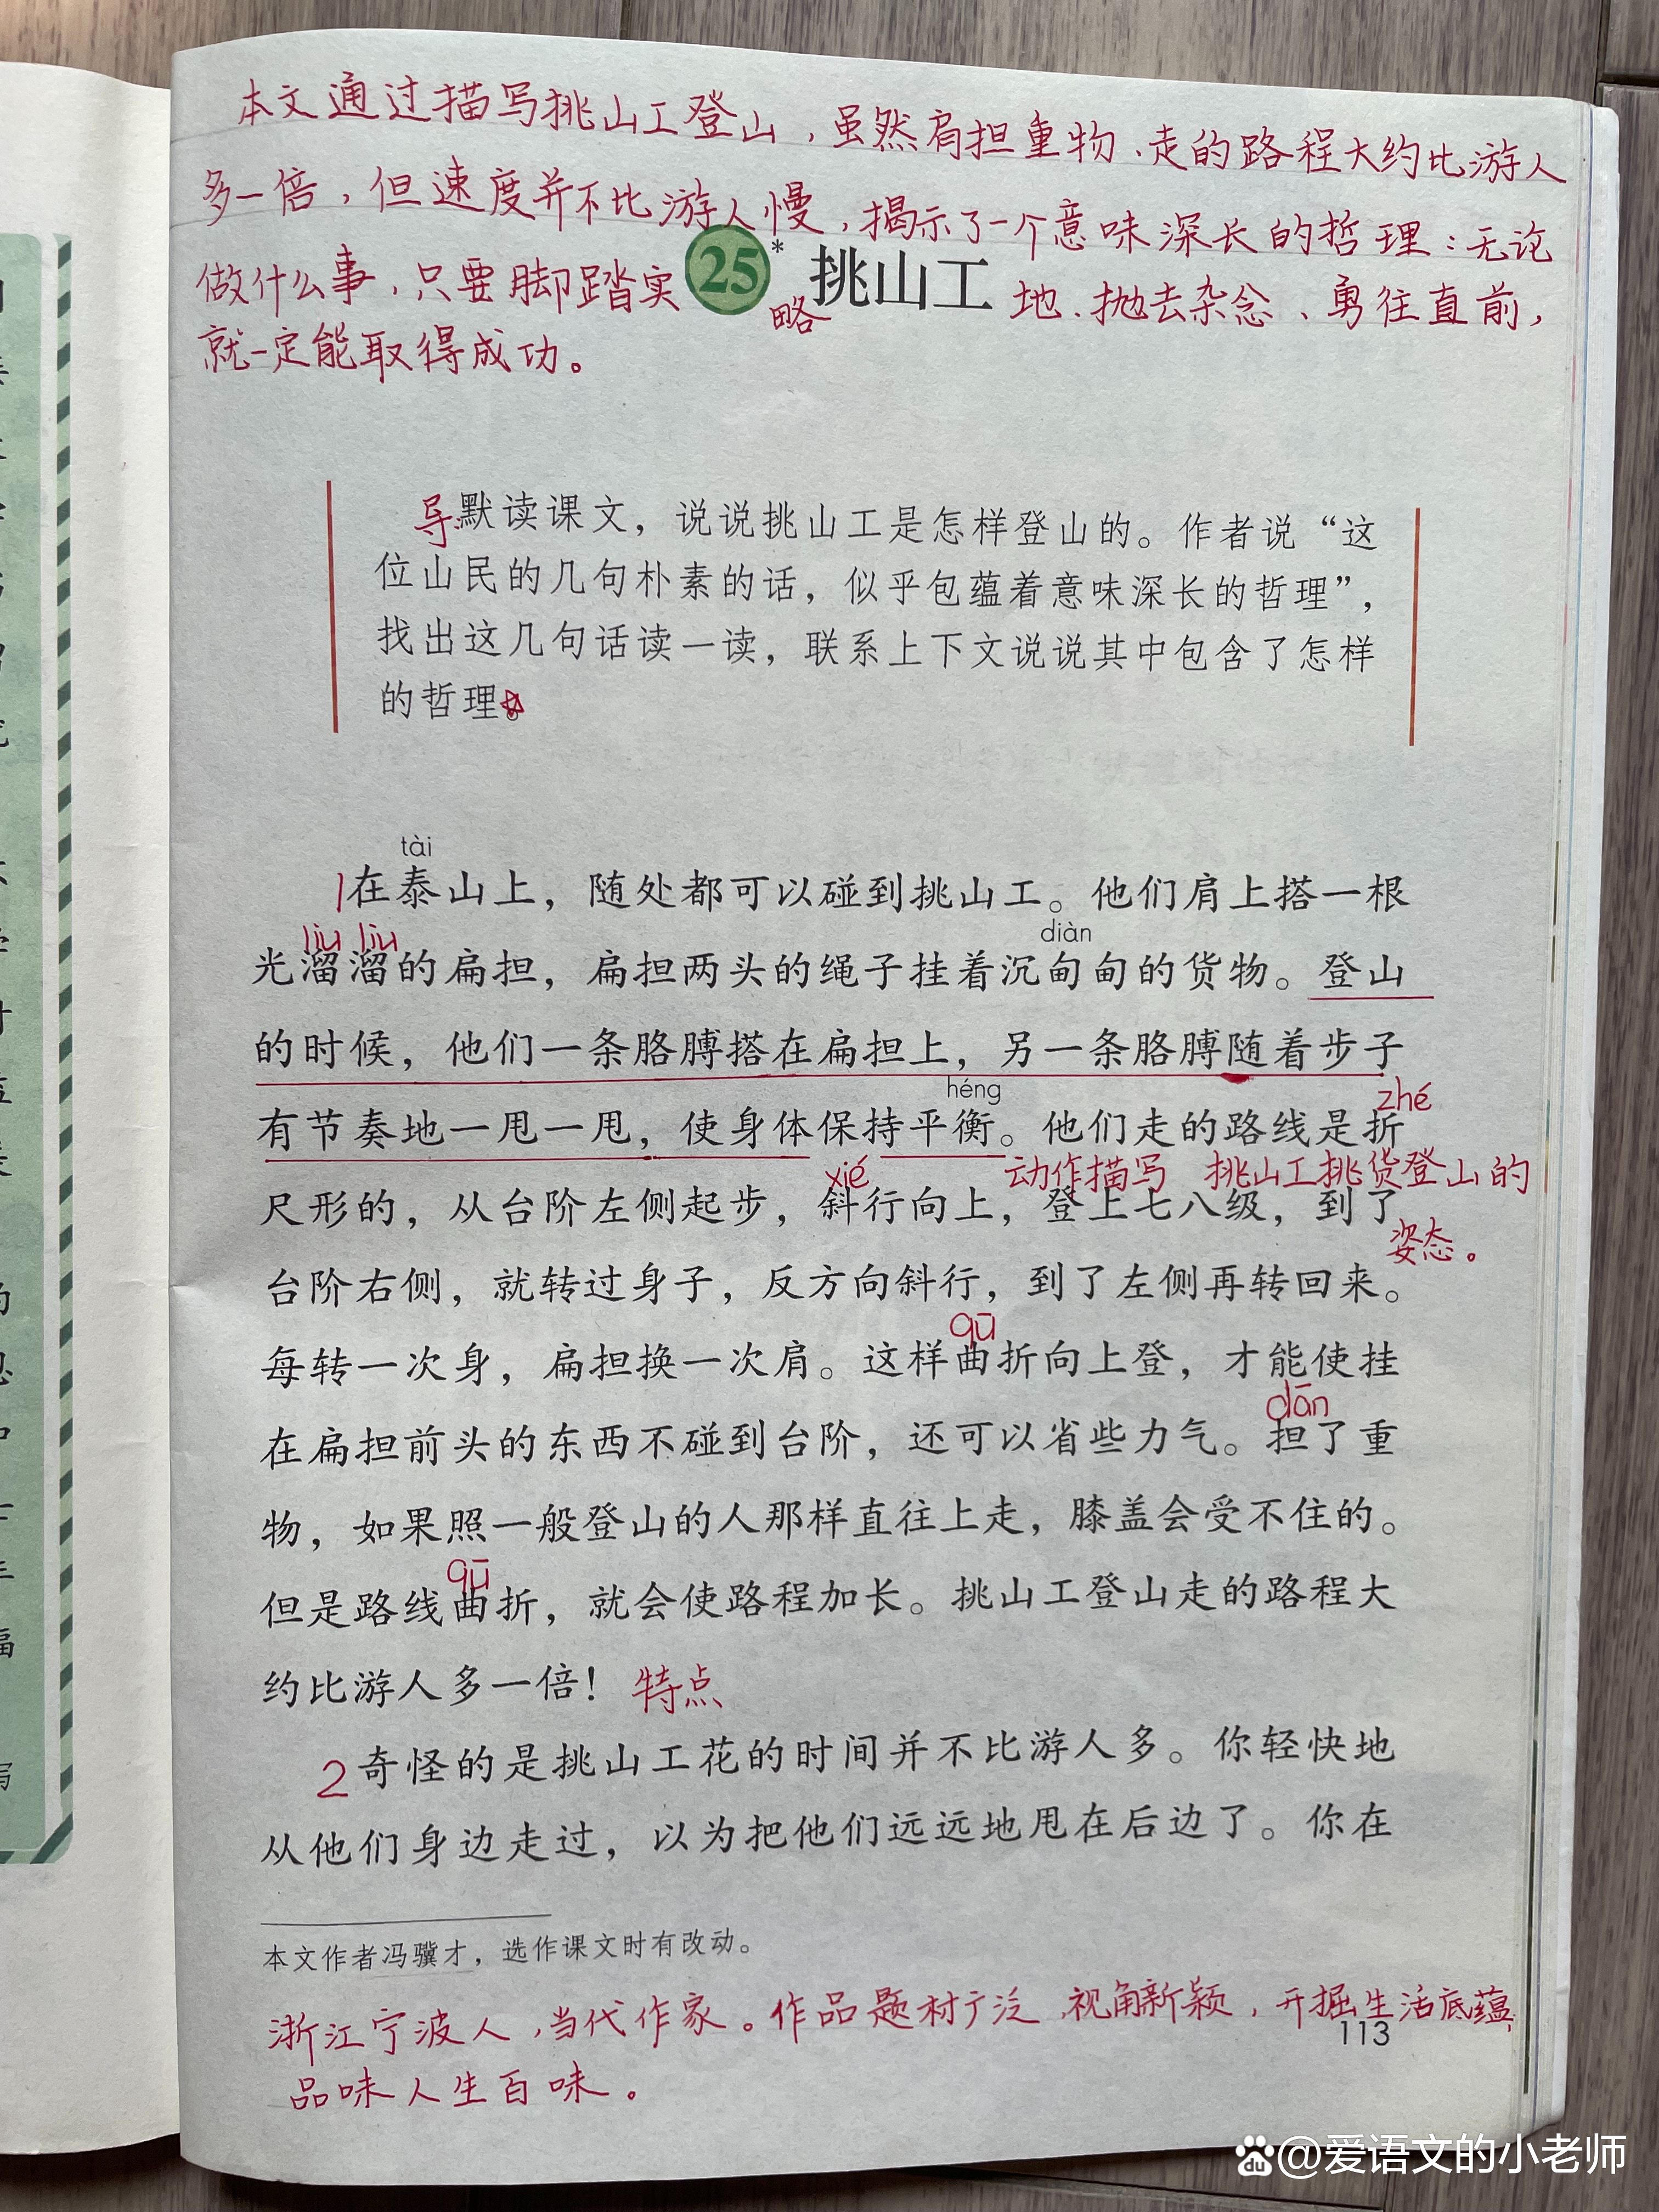 本文通过描写挑山工登山,虽然肩担重物、走的路程大约比游人
多一倍,但速度并不比游人慢,揭示了一个意味深长的哲理:无论
做什么事,只要脚踏实地、抛去杂念、勇往直前,
就一定能取得成功。
25* 挑山工
略
导:默读课文，说说挑山工是怎样登山的。作者说“这
位山民的几句朴素的话，似乎包蕴着意味深长的哲理”，
找出这几句话读一读，联系上下文说说其中包含了怎样
的哲理。
tài
1在泰山上，随处都可以碰到挑山工。他们肩上搭一根
liu liu diàn
光溜溜的扁担，扁担两头的绳子挂着沉甸甸的货物。登山
的时候，他们一条胳膊搭在扁担上，另一条胳膊随着步子
héng zhé
有节奏地一甩一甩，使身体保持平衡。他们走的路线是折
xié 动作描写 挑山工挑货登山的
尺形的，从台阶左侧起步，斜行向上，登上七八级，到了
姿态。
台阶右侧，就转过身子，反方向斜行，到了左侧再转回来。
qū
每转一次身，扁担换一次肩。这样曲折向上登，才能使挂
dān
在扁担前头的东西不碰到台阶，还可以省些力气。担了重
物，如果照一般登山的人那样直往上走，膝盖会受不住的。
qū
但是路线曲折，就会使路程加长。挑山工登山走的路程大
约比游人多一倍！ 特点
2奇怪的是挑山工花的时间并不比游人多。你轻快地
从他们身边走过，以为把他们远远地甩在后边了。你在
本文作者冯骥才，选作课文时有改动。
浙江宁波人,当代作家。作品题材广泛,视角新颖,开掘生活底蕴,
113
品味人生百味。
du @爱语文的小老师